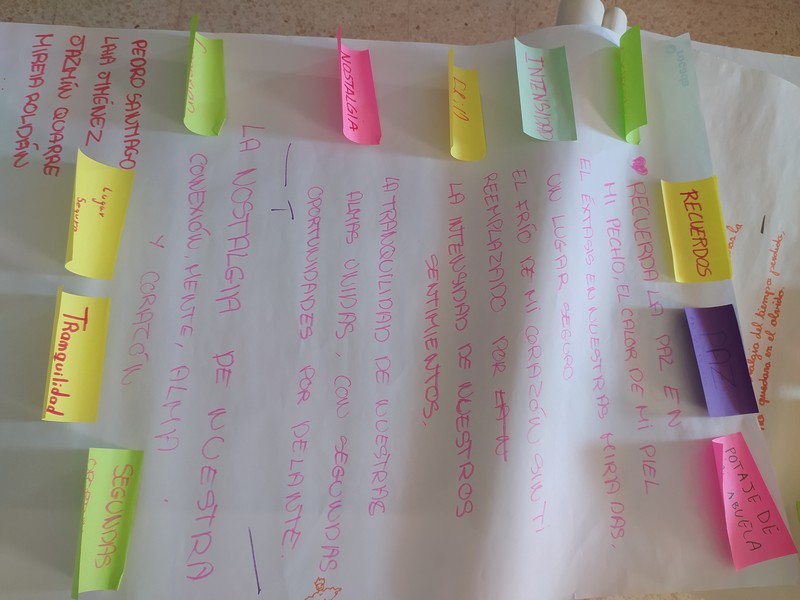 RECUERDOS
PAZ
POTAJE DE
ABUELA
INTENSIDAD
NOSTALGIA
Lugar
Seguro
TRanquilidad
SEGUNDAS
RECUERDA LA PAZ EN
MI PECHO, EL CALOR DE MI PIEL
EL ÉXTASIS EN NUESTRAS MIRADAS,
UN LUGAR SEGURO
EL FRÍO DE MI CORAZÓN SIN TI
REEMPLAZADO POR
LA INTENSIDAD DE NUESTROS
SENTIMIENTOS.
LA TRANQUILIDAD DE NUESTRAS
ALMAS UNIDAS, CON SEGUNDAS
OPORTUNIDADES POR DELANTE.
LA NOSTALGIA DE NUESTRA
CONEXIÓN, MENTE, ALMA
Y CORAZÓN
PEDRO SANTIAGO
LAIA JIMÉNEZ
JAZMÍN QUARAE
MIREIA ROLDÁN
del tiempo perdido,
quedara en el olvido